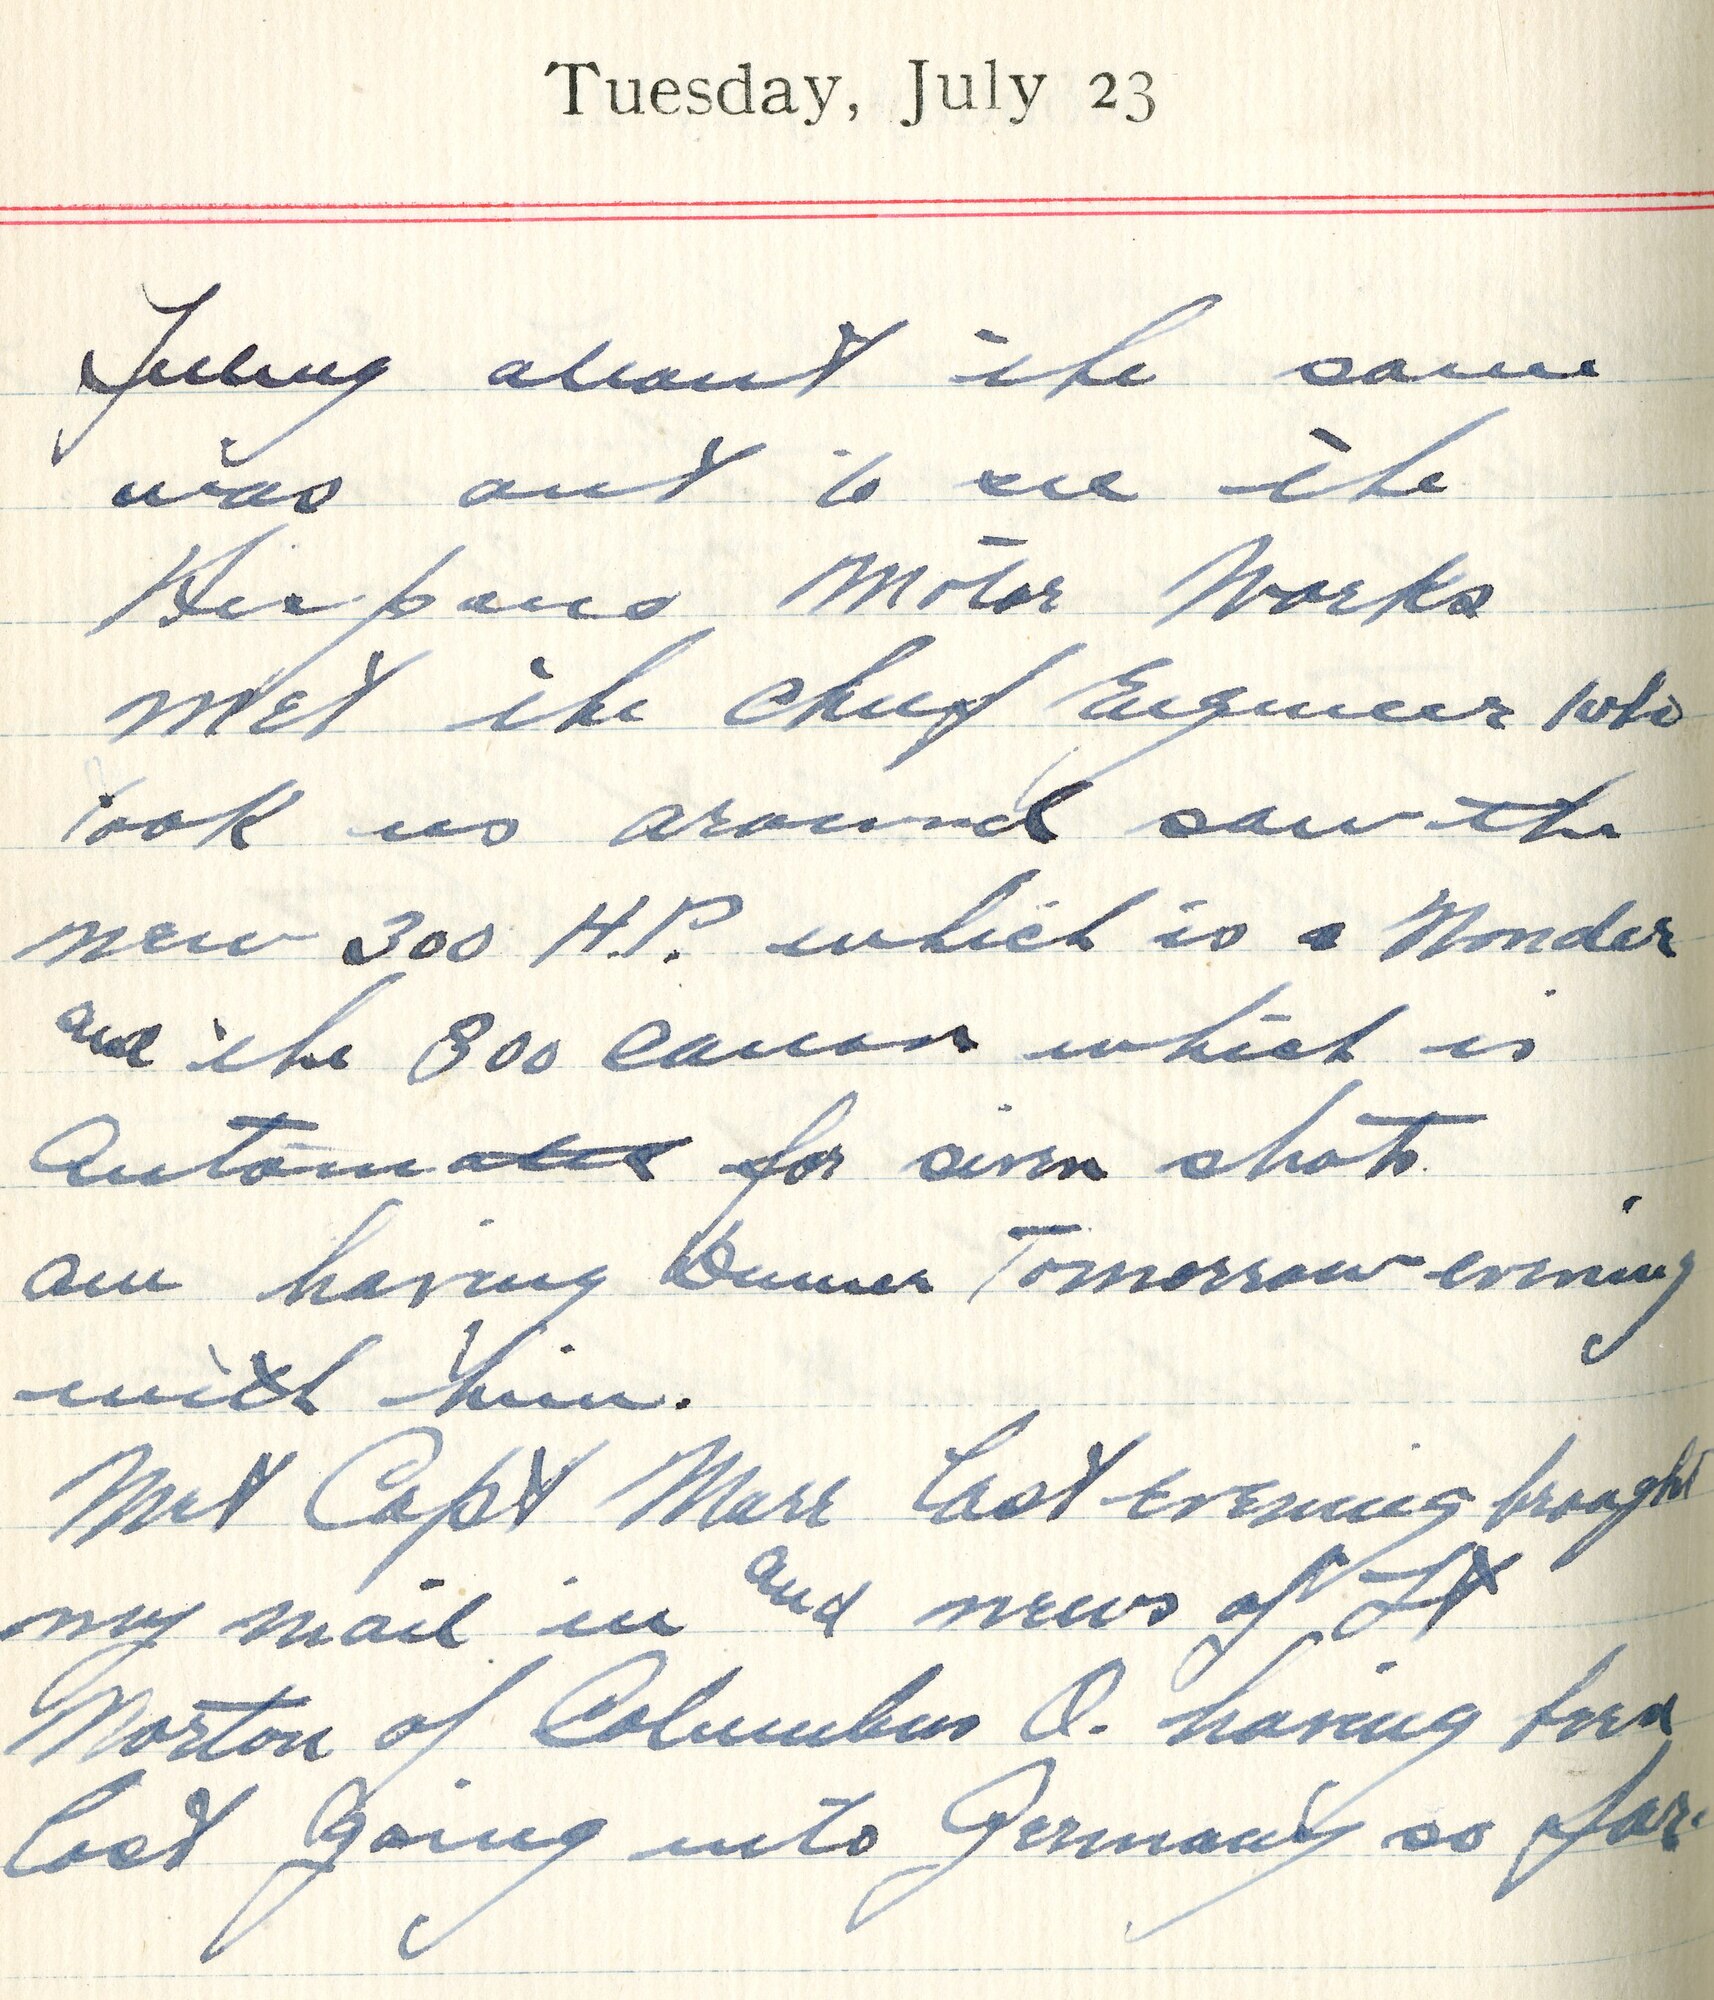 Tuesday, July 23
Feeling about the same
was out to see the
Hispano Motor Works
met the Chief Engineer who
took us around saw the
new 300 H.P. which is a Wonder
and the 800 canon which is
Automatic for seven shots.
am having Dinner Tomorrow evening
with him.
Met Capt Marr last evening brought
my mail in and news of Lt
Norton of Columbus O. having been
lost going into Germany so far.